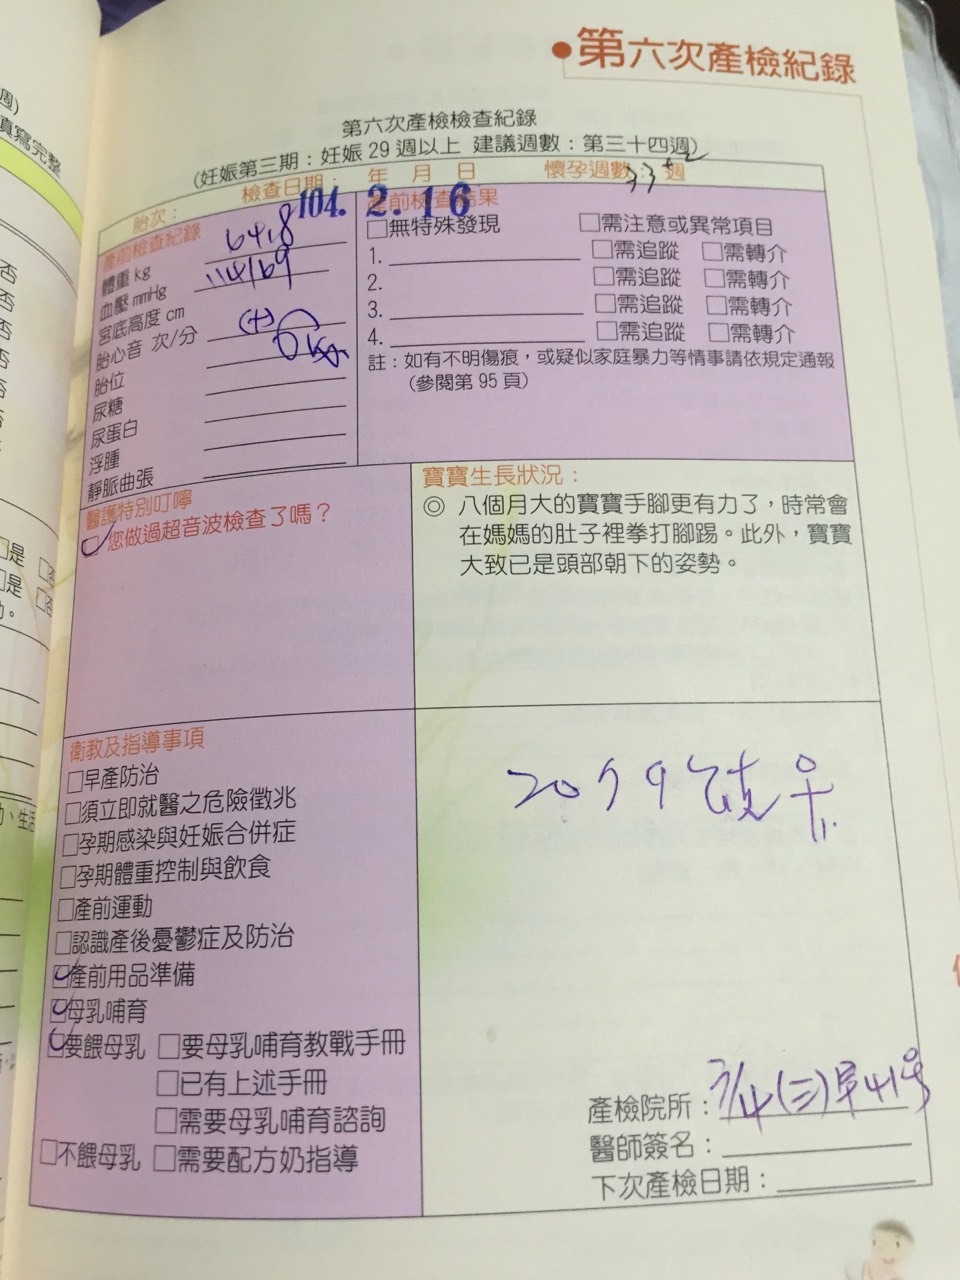 第六次產檢紀錄
第六次產檢檢查紀錄
(妊娠第三期：妊娠 29 週以上 建議週數：第三十四週)
胎次： 檢查日期： 年 月 日 懷孕週數： 週
104. 2. 16
33
產前檢查紀錄
體重 kg 64.8
血壓 mmHg 114/69
宮底高度 cm
胎心音 次/分 (+)
胎位
尿糖
尿蛋白
浮腫
靜脈曲張
產前檢查結果
□無特殊發現 □需注意或異常項目
1. □需追蹤 □需轉介
2. □需追蹤 □需轉介
3. □需追蹤 □需轉介
4. □需追蹤 □需轉介
註：如有不明傷痕，或疑似家庭暴力等情事請依規定通報
(參閱第 95 頁)
醫護特別叮嚀
□您做過超音波檢查了嗎？
寶寶生長狀況：
◎ 八個月大的寶寶手腳更有力了，時常會
在媽媽的肚子裡拳打腳踢。此外，寶寶
大致已是頭部朝下的姿勢。
衛教及指導事項
□早產防治
□須立即就醫之危險徵兆
□孕期感染與妊娠合併症
□孕期體重控制與飲食
□產前運動
□認識產後憂鬱症及防治
□產前用品準備
□母乳哺育
□要餵母乳 □要母乳哺育教戰手冊
□已有上述手冊
□需要母乳哺育諮詢
□不餵母乳 □需要配方奶指導
產檢院所：
醫師簽名：
下次產檢日期：